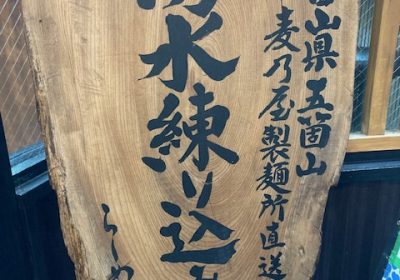 山県五箇山
麦乃屋製麺所直送
水練り込み
らーめ